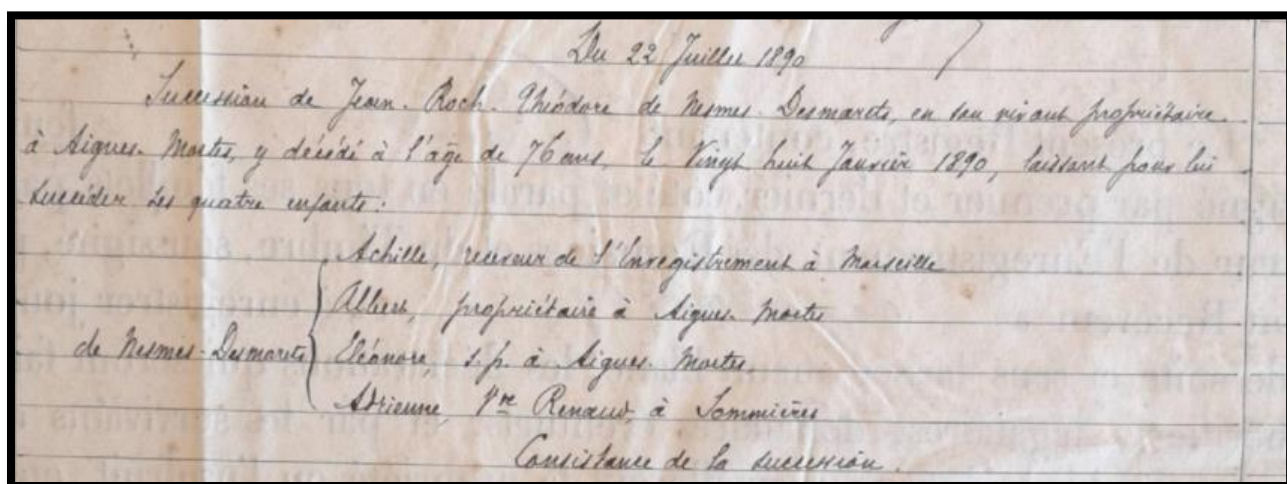 Du 22 Juillet 1890
Succession de Jean-Roch-Théodore de Nesmes-Desmarets, en son vivant propriétaire
à Aigues-Mortes, y décédé à l'âge de 76 ans, le Vingt huit Janvier 1890, laissant pour lui
succéder ses quatre enfants:
Achille, receveur de l'Enregistrement à Marseille
Albert, propriétaire à Aigues-Mortes
de Nesmes-Desmarets Eléonore, s.p. à Aigues-Mortes
Adrienne, Vve Renaud, à Sommières
Consistance de la succession.